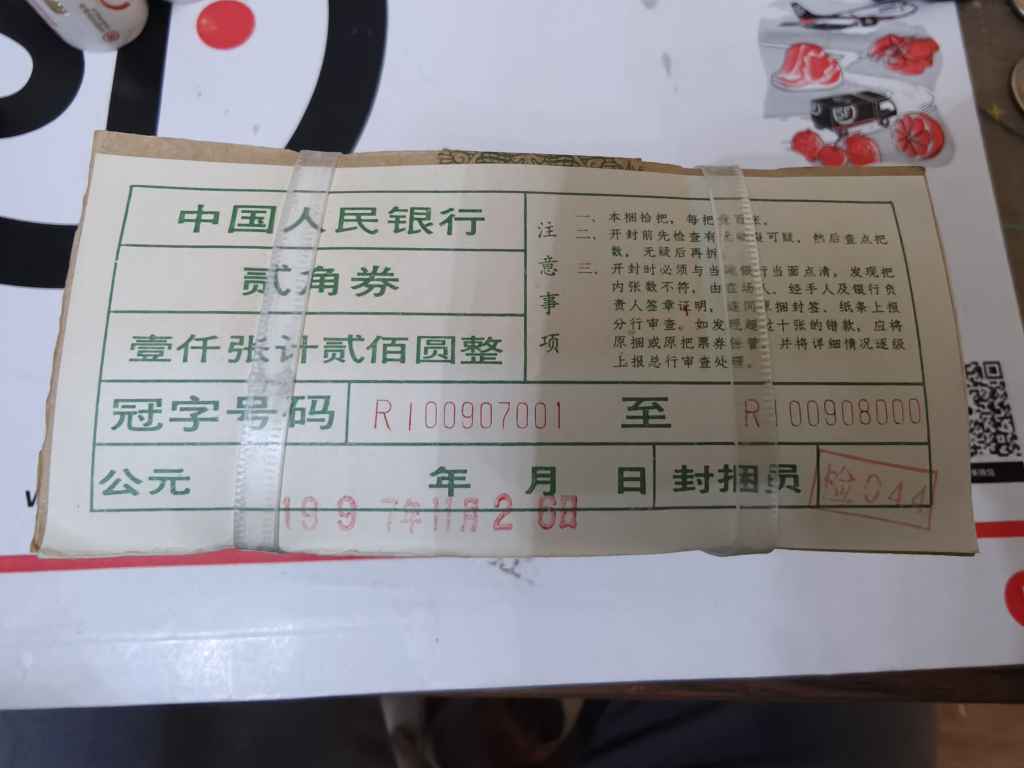 中国人民银行
贰角券
壹仟张计贰佰圆整
注意事项
一、本捆拾把，每把壹百张。
二、开封前先检查有无破裂可疑，然后查点把
数，无疑后再拆。
三、开封时必须与当地银行当面点清，发现把
内张数不符，由在场人、经手人及银行负
责人签章证明，连同原捆封签、纸条上报
分行审查。如发现超过十张的错款，应将
原捆或原把票券保管，并将详细情况逐级
上报总行审查处理。
冠字号码 R100907001 至 R100908000
公元 年 月 日 封捆员 检044
1997年11月26日